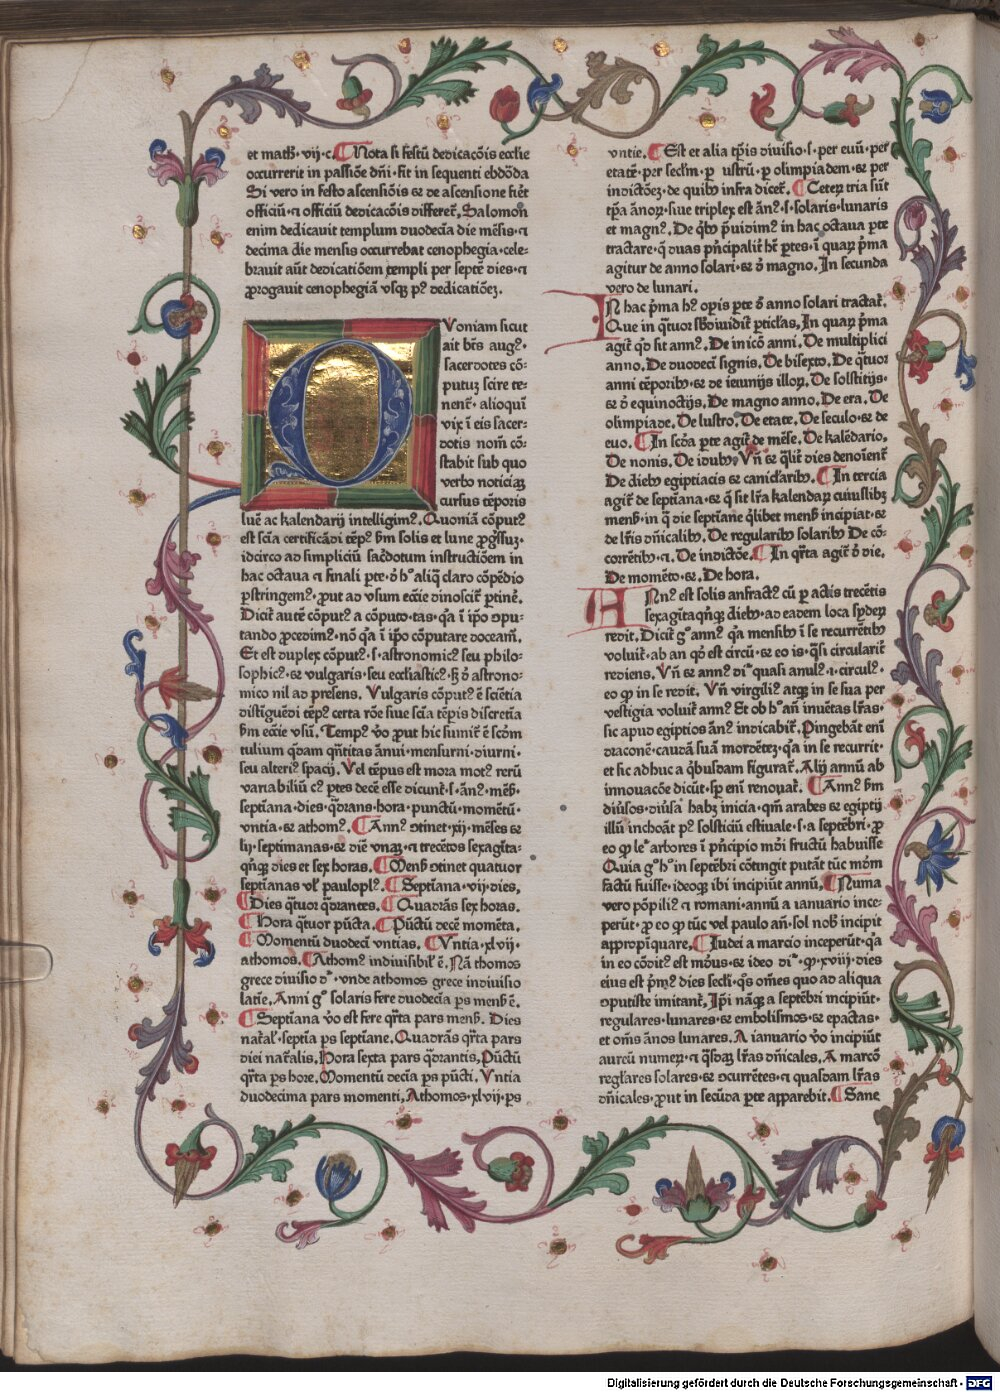 et math̄·vij·c. Nota si festū dedicacōis ecclie
occurrerit in passiōe dn̄i·fit in sequenti ebdōda
Si vero in festo ascensiōis & de ascensione fiēt
officiū·⁊ officiū dedicacōis differet̄, Salomon
enim dedicauit templum duodecīa die mēsis·⁊
decima die mensis occurrebat cenophegia·cele-
brauit aūt dedicatiōem templi per septē dies·⁊
ꝓrogauit cenophegiā vsqꝫ pꝰ dedicatiōeꝫ.
QVoniam sicut
ait bt̄s augꝰ.
sacerdotes cō-
putuꝫ scire te-
nent᷑· alioqui
vix ī eis sacer-
dotis nom̄ cō-
stabit sub quo
verbo noticiaꝫ
cursus tēporis
lun̄e ac kalendarij intelligimꝰ. Quoniā cōputꝰ
est scīa certificādi tēpꝰ ẜm solis et lune ꝓgssuꝫ·
idcirco ad simpliciū sac̄dotum instructiōem in
hac octaua ⁊ finali ꝑte·ꝺ hꝰ aliqͥ claro cōpēdio
ꝑstringemꝰ, ꝓut ad vsum ecc̄ie dinoscit᷑ ꝑtinē.
Dicit᷑ autē cōputꝰ a cōputo·tas·qͥa ī ip̄o ꝯpu-
tando ꝓcedimꝰ·nō qͥa ī ip̄o cōputare doceam᷑.
Et est duplex cōputꝰ·s·astronomicꝰ seu philo-
sophicꝰ·& vulgaris·seu eccl̄iasticꝰ·sꝫ ꝺ astrono-
mico nil ad presens. Vulgaris cōputꝰ ē scīētia
distiguēdi tēpꝰ certa rōe siue scīa tēpis discretīa
ẜm ecc̄ie vsū. Tempꝰ v̄o ꝓut hic sumit᷑ ē scōm
tulium qͣdam qͣntitas ānui·mensurni·diurni·
seu alteriꝰ spacij. Vel tēpus est mora motꝰ rerū
variabiliū cꝰ ꝑtes decē esse dicunt᷑·s·ānꝰ·mēẜ·
septiana·dies·qͣdrans·hora·punctū·momētū·
vntia·& athomꝰ. Annꝰ ꝯtinet·xij·mēses &
lij·septimanas·& diē vnaꝫ·⁊ trecētos sexagīta-
qͥnqꝫ dies et sex horas. Menẜ ꝯtinet quatuor
septianas vl̓ paulopl̓ꝰ. Septiana·vij·dies,
Dies qͣtuor qͣdrantes. Quadrās sex horas.
Hora qͣtuor pūcta. Pūctū decē momēta.
Momentū duodecī vntias. Vntia·xlvij·
athomos. Athomꝰ indiuisibil̓ ē. Nā thomos
grece diuisio dꝛ·vnde athomos grece indiuisio
latīe. Anni gͦ solaris fere duodecīa ps menẜ ē.
Septiana v̄o est fere qͣrta pars menẜ. Dies
nat̓al̓·septīa ps septiane. Quadrās qͣrta pars
diei nat̓alis, Hora sexta pars qͣdrantis, Pūctū
qͣrta ps hore. Momentū decīa ps pūcti, Vntia
duodecima pars momenti, Athomos·xlvij·ps
vntie. Est et alia tꝑis diuisio·s·per euū·per
etatē·per secl̓m·ꝑ lustrū·ꝑ olimpiadem·& per
indictōeꝫ·de quibꝰ infra dicet᷑. Ceteꝝ tria sūt
tꝑa ānoꝝ·siue triplex est ānꝰ·s·solaris·lunaris
et magnꝰ. De qͥbꝰ ꝓuidimꝰ in hac octaua ꝑte
tractare·q̄ duas pͥncipalit᷑ hꝫ ꝑtes·ī quaꝝ pͥma
agitur de anno solari·& ꝺ magno. In secunda
vero de lunari.
IN hac pͥma hꝰ oꝑis ꝑte ꝺ anno solari tractat᷑.
Que in qͣtuor sb̄diuidit᷑ ꝑticl̓as, In quaꝝ pͥma
agit᷑ qͥd sit annꝰ. De inicō anni. De multiplici
anno. De duodecī signis. De bisexto. De qͣtuor
anni tēporibꝰ·& de ieiunijs illoꝝ. De solstitijs·
& ꝺ equinoctijs. De magno anno. De era. De
olimpiade. De lustro. De etate. De seculo·& de
euo. In scd̄a ꝑte agit᷑ de mēse. De kalēdario.
De nonis. De idubꝰ. Vn̄ & qͣlit᷑ dies denoīent᷑
De diebꝰ egiptiacis & canicl̓aribꝰ. In tercia
agit᷑ de septiana·& q̄ sit lr̄a kalendaꝝ cuiuslibꝫ
menẜ·in q̄ die septiane qͥlibet menẜ incipiat·&
de lr̄is dn̄icalibꝰ. De regularibꝰ solaribꝰ De cō-
corrētibꝰ·⁊. De indictōe. In qͣrta agit᷑ ꝺ die.
De momēto·&. De hora.
ANnꝰ est solis anfractꝰ cū ꝑ actis trecētis
sexagītaqͥnqꝫ diebꝰ·ad eadem loca syderꝫ
redit. Dicit᷑ gͦ annꝰ qͥa mensibꝰ ī se recurrētibꝰ
voluit᷑·ab an qd̓ est circū·& eo is·qͣsi circularit᷑
rediens. Vn̄ & annꝰ dꝛ quasi anulꝰ·⁊·circulꝰ·
eo ꝙ in se redit. Vn̄ virgiliꝰ atqꝫ in se sua per
vestigia voluit᷑ annꝰ Et ob hͦ an̄ inuētas lr̄as·
sic apud egiptios ānꝰ indicabit᷑. Pingebāt enī
draconē·caudā suā mordēteꝫ·qͥa in se recurrit·
et sic adhuc a qͥbusdam figurat᷑. Alij annū ab
innouacōe dicūt·sꝑ enī renouat᷑. Annꝰ ẜm
diūsos·diūsa habꝫ inicia·qm̄ arabes & egiptij
illū inchoāt pꝰ solsticiū estiuale·s·a septēbri·ꝓ
eo ꝙ leꝰ arbores ī pͥncipio mōi fructū habuisse
Quia gͦ hͦ in septēbri cōtingit putāt tūc mōm
factū fuisse·ideoqꝫ ibi incipiūt annū, Numa
vero pōpiliꝰ ⁊ romani·annū a ianuario ince-
perūt·ꝓ eo ꝙ tūc vel paulo an̄·sol nob̄ incipit
appropīquare, Iudei a marcio inceperūt·qͥa
in eo cōditꝰ est mōus·& ideo dꝛ·ꝙ·xviij·dies
eius est pͥmꝰ dies secl̓i·qͦs oēs quo ad aliqua
ꝯputiste imitant᷑, Ip̄i nāqꝫ a septēbri incipiūt·
regulares·lunares·& embolismos·& epactas·
et om̄s ānos lunares. A ianuario v̄o incipiūt
aureū numeꝝ·⁊ qͣsdaꝫ lr̄as dn̄icales, A marcō
regl̓ares solares·& ꝯcurrētes·⁊ quasdam lr̄as
dn̄icales·ꝓut in secūda ꝑte apparebit. Sane
Digitalisierung gefördert durch die Deutsche Forschungsgemeinschaft - DFG